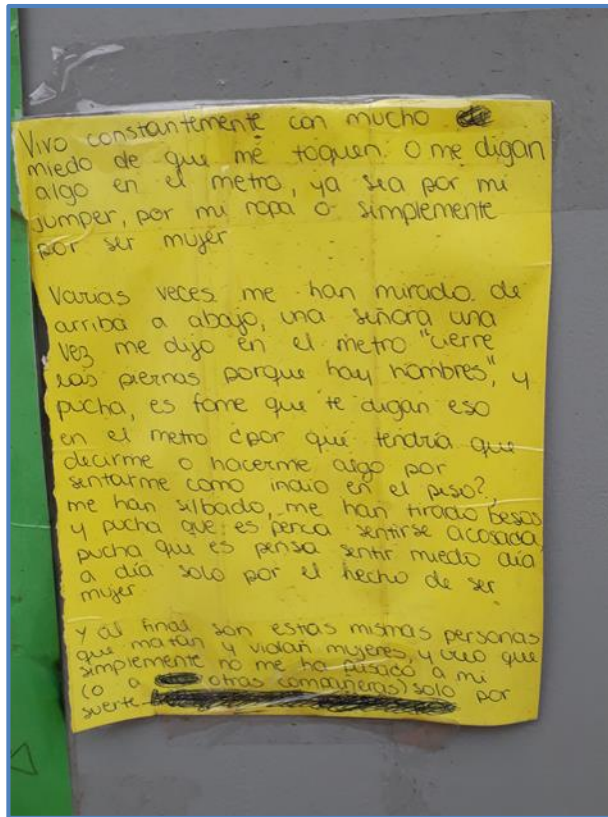 Vivo constantemente con mucho
miedo de que me toquen o me digan
algo en el metro, ya sea por mi
jumper, por mi ropa o simplemente
por ser mujer
Varias veces me han mirado de
arriba a abajo, una señora una
vez me dijo en el metro "cierre
las piernas porque hay hombres", y
pucha, es fome que te digan eso
en el metro ¿por qué tendría que
decirme o hacerme algo por
sentarme como indio en el piso?,
me han silbado, me han tirado besos
y pucha que es penca sentirse acosada
pucha que es pensa sentir miedo día
a día solo por el hecho de ser
mujer
y al final son estas mismas personas
que matan y violan mujeres, y creo que
simplemente no me ha pasado a mi
(o a otras compañeras) solo por
suerte